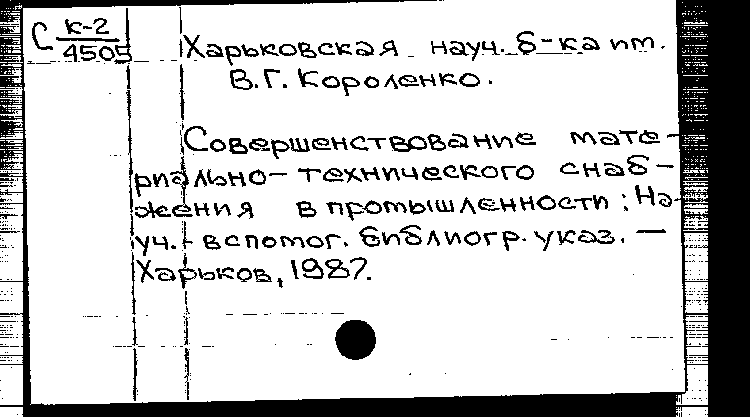 С К-2
4505
Харьковская науч. б-ка им.
В.Г. Короленко.
Совершенствование мате-
риально-технического снаб-
жения в промышленности: На-
уч.-вспомог. библиогр. указ. —
Харьков, 1987.